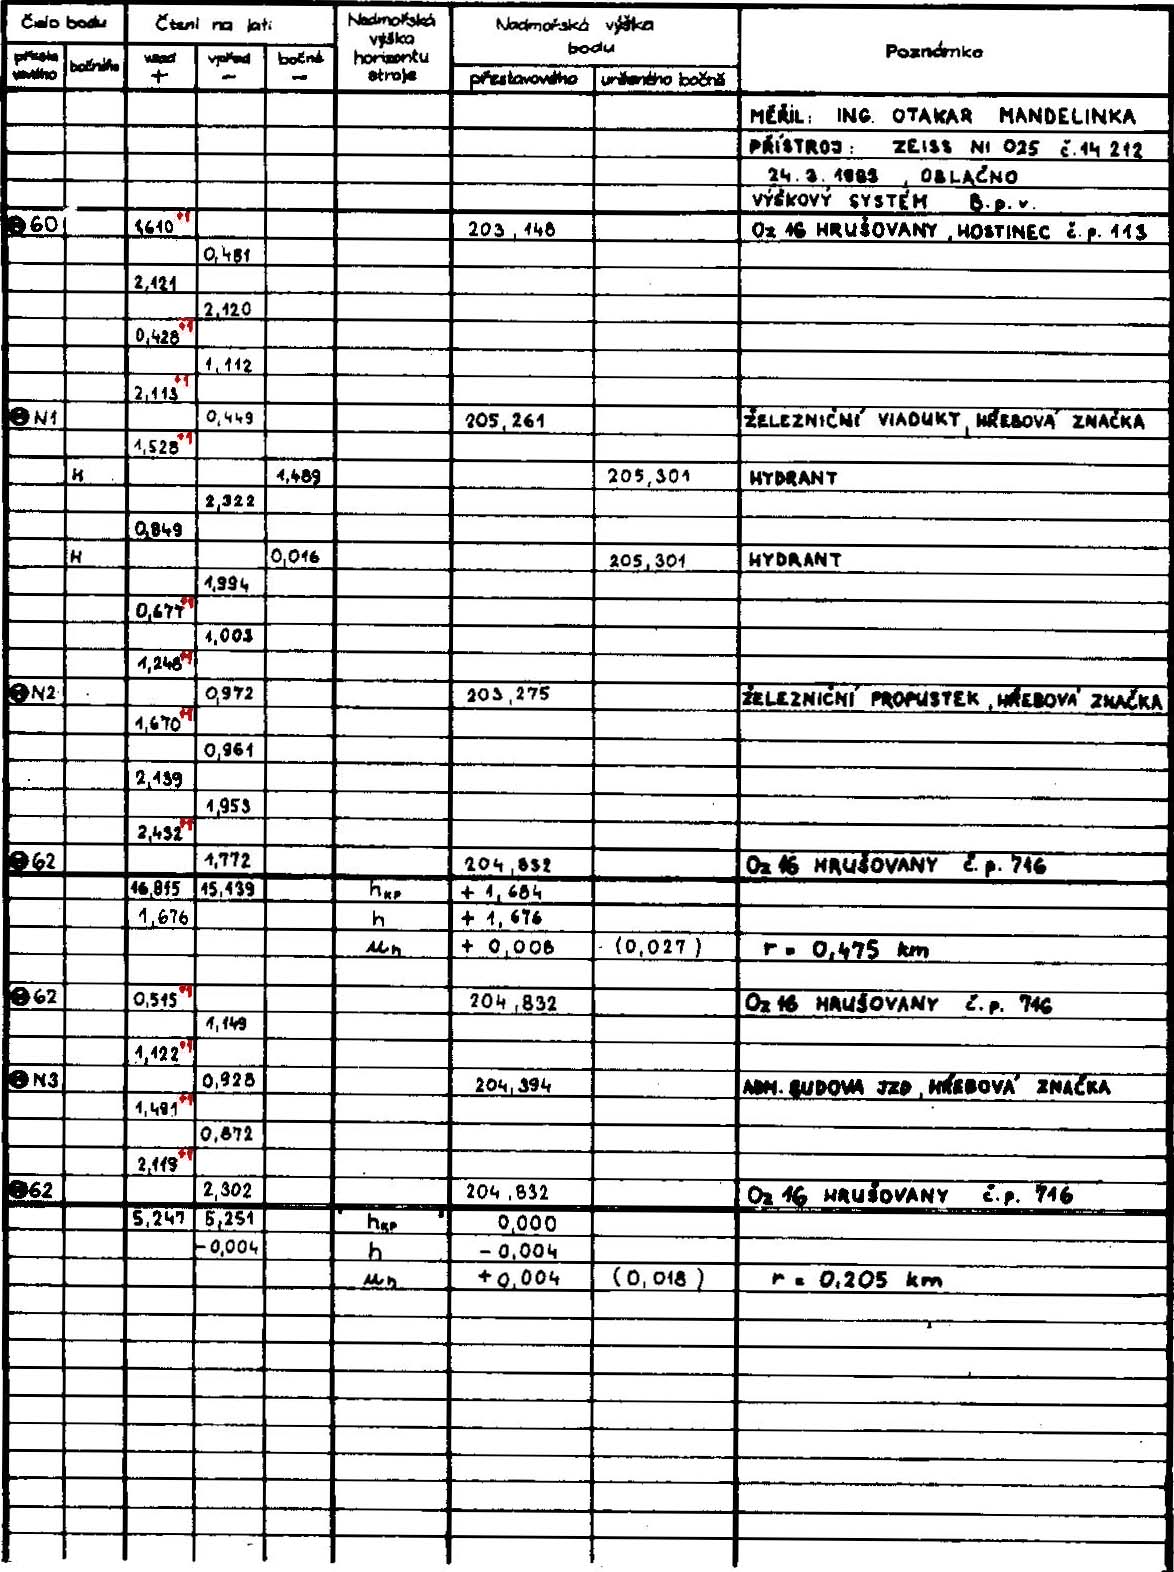 Číslo bodu Čtení na lati Nadmořská výška horizontu stroje Nadmořská výška bodu Poznámka
přesta vového bočního vzad + vpřed − bočně − přestavového určeného bočně
MĚŘIL: ING. OTAKAR MANDELINKA
PŘÍSTROJ: ZEISS NI 025 č.14 212
24. 3. 1983, OBLAČNO
VÝŠKOVÝ SYSTÉM B.p.v.
60 1,610 +1 203,148 Oz 16 HRUŠOVANY, HOSTINEC č.p. 113
0,481
2,121
2,120
0,428 +1
1,112
2,113 +1
N1 0,449 205,261 ŽELEZNIČNÍ VIADUKT, HŘEBOVÁ ZNAČKA
1,528 +1
H 1,489 205,301 HYDRANT
2,322
0,849
H 0,016 205,301 HYDRANT
1,994
0,677 +1
1,003
1,248 +1
N2 0,972 203,275 ŽELEZNIČNÍ PROPUSTEK, HŘEBOVÁ ZNAČKA
1,670 +1
0,961
2,139
1,953
2,432 +1
62 1,772 204,832 Oz 16 HRUŠOVANY č.p. 716
16,815 15,139 hKP + 1,684
1,676 h + 1,676
uh + 0,008 (0,027) r = 0,475 km
62 0,515 +1 204,832 Oz 16 HRUŠOVANY č.p. 716
1,149
1,122 +1
N3 0,928 204,394 ADM. BUDOVA JZD, HŘEBOVÁ ZNAČKA
1,491 +1
0,872
2,119 +1
62 2,302 204,832 Oz 16 HRUŠOVANY č.p. 716
5,247 5,251 hKP 0,000
-0,004 h - 0,004
uh + 0,004 (0,018) r = 0,205 km